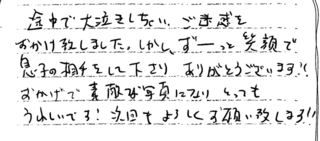 途中で大泣きしちゃい、ご迷惑を
おかけ致しました。しかし、ずーっと笑顔で
息子の相手をして下さり ありがとうございます!!
おかげで素敵な写真になり とっても
うれしいです! 次回もよろしくお願い致します!!